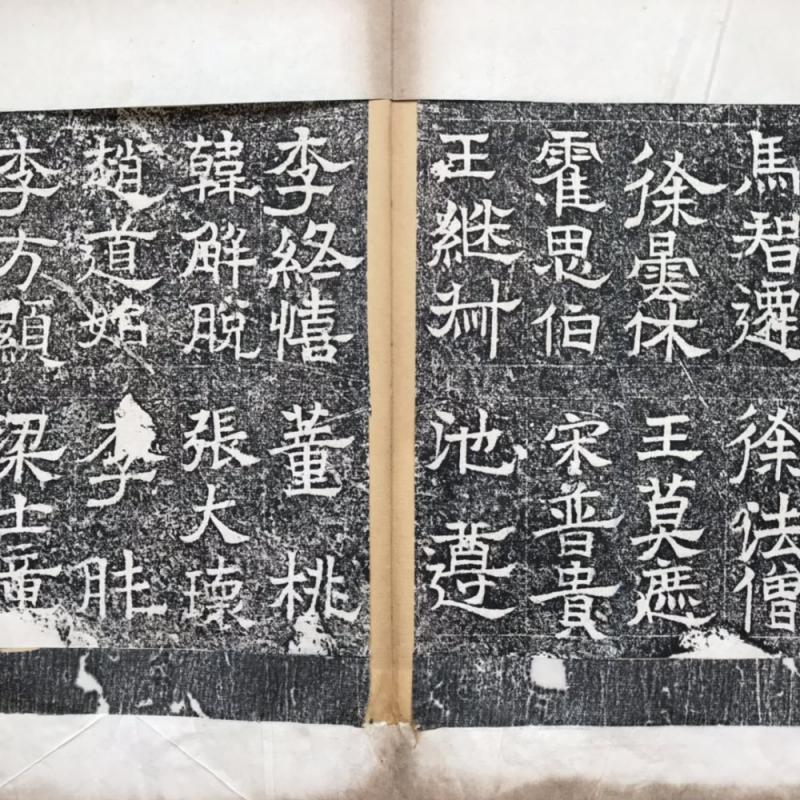 馬智遷 徐法僧
徐曇休 王莫遮
霍思伯 宋普貴
王継 池遵
李終憘 董桃
韓解脫 張大
趙道始 李
李方顯 梁士童